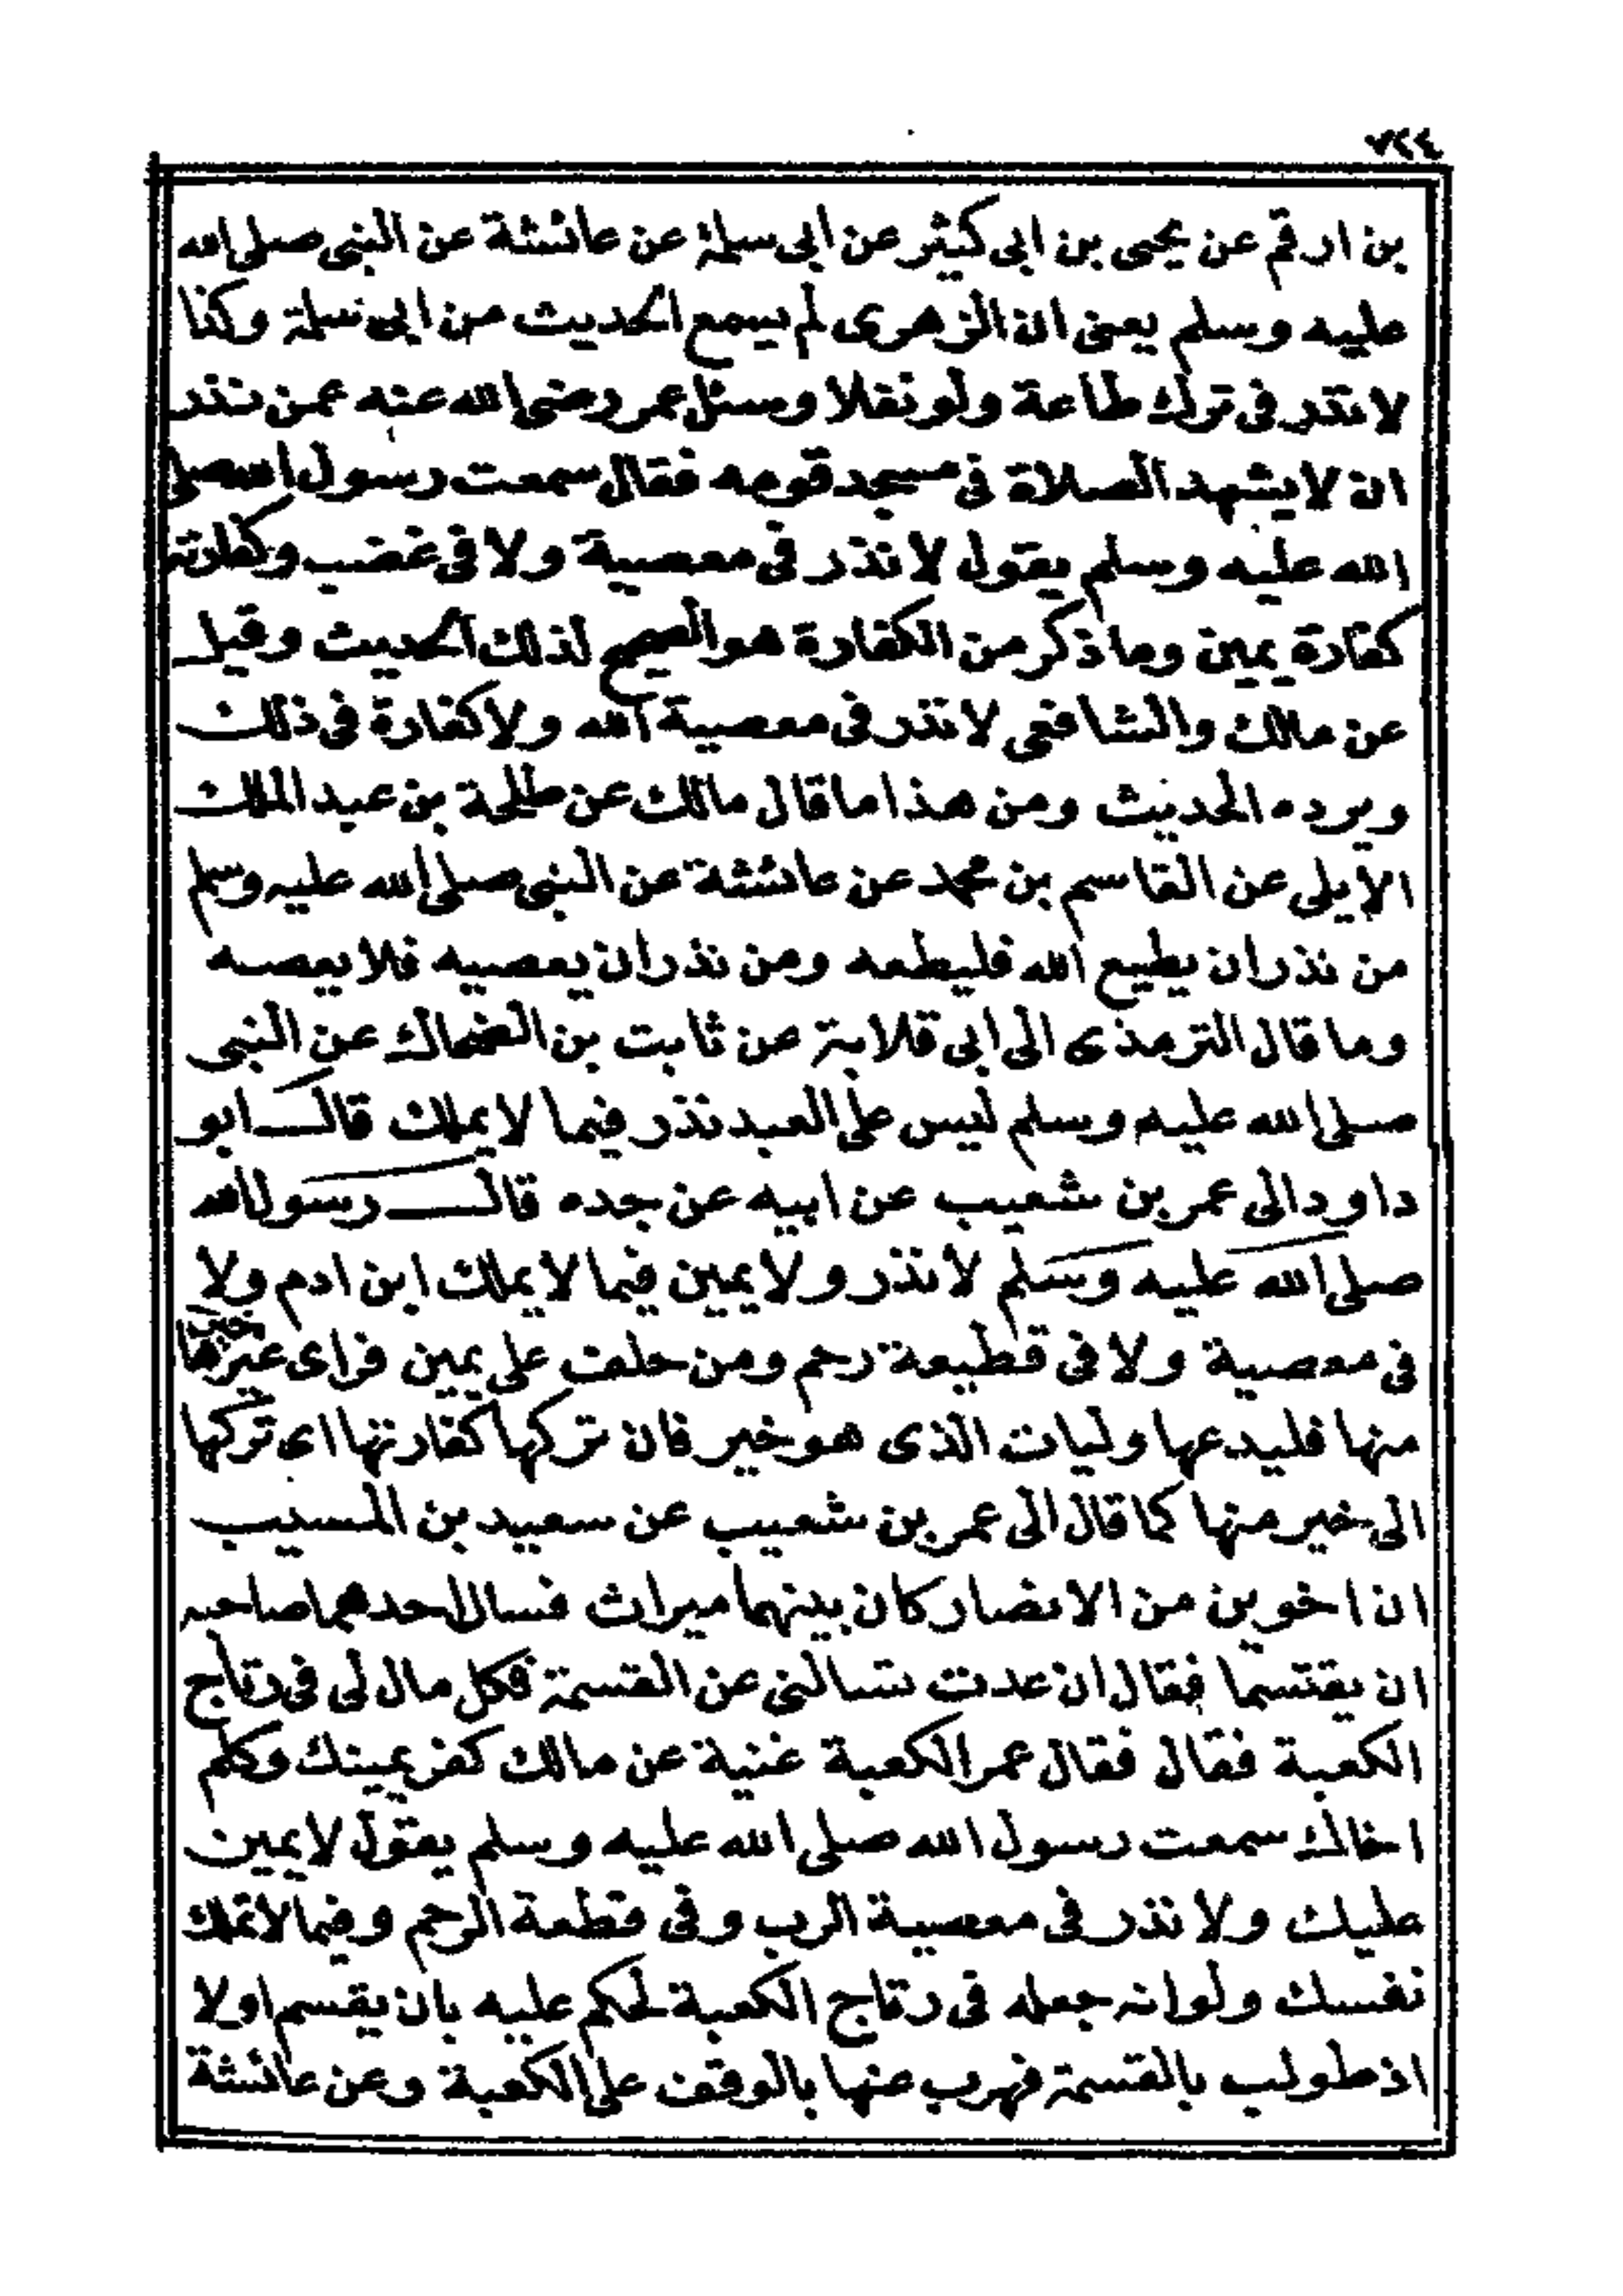 ٧٢٤
بن ارقم عن يحيى بن ابى كثير عن ابى سلمة عن عائشة عن النبى صلى الله
عليه وسلم يعنى ان الزهرى لم يسمع الحديث من ابى سلمة وكذا
لا نذر فى ترك طاعة ولو نفلا وسئل عمر رضى الله عنه عمن نذر
ان لا يشهد الصلاة فى مسجد قومه فقال سمعت رسول الله صلى
الله عليه وسلم يقول لا نذر فى معصية ولا فى غضب وكفارته
كفارة يمين وما ذكر من الكفارة هو الصحيح لذلك الحديث وقيل
عن مالك والشافعى لا نذر فى معصية الله ولا كفارة فى ذلك
ويرده الحديث ومن هذا ما قال مالك عن طلحة بن عبد الملك
الايلى عن القاسم بن محمد عن عائشة عن النبى صلى الله عليه وسلم
من نذر ان يطيع الله فليطعه ومن نذر ان يعصيه فلا يعصه
وما قال الترمذى الى ابى قلابة عن ثابت بن الضحاك عن النبى
صلى الله عليه وسلم ليس على العبد نذر فيما لا يملك قال ابو
داود الى عمر بن شعيب عن ابيه عن جده قال رسول الله
صلى الله عليه وسلم لا نذر ولا يمين فيما لا يملك ابن ادم ولا
فى معصية ولا فى قطيعة رحم ومن حلف على يمين فراى غيرها خيرا
منها فليدعها وليات الذى هو خير فان تركها كفارتها اى تركها
الى خير منها كما قال الى عمر بن شعيب عن سعيد بن المسيب
ان اخوين من الانصار كان بينهما ميراث فسال احدهما صاحبه
ان يقتسما فقال ان عدت تسالنى عن القسمة فكل مال لى فى رتاج
الكعبة فقال فقال عمر الكعبة غنية عن مالك كفر يمينك وكلم
اخاك سمعت رسول الله صلى الله عليه وسلم يقول لا يمين
عليك ولا نذر فى معصية الرب وفى قطعة الرحم وفيما لا تملك
نفسك ولو انه جعله فى رتاج الكعبة لحكم عليه بان يقسم اولا
اذ طولب بالقسمة فهرب عنها بالوقف على الكعبة وعن عائشة